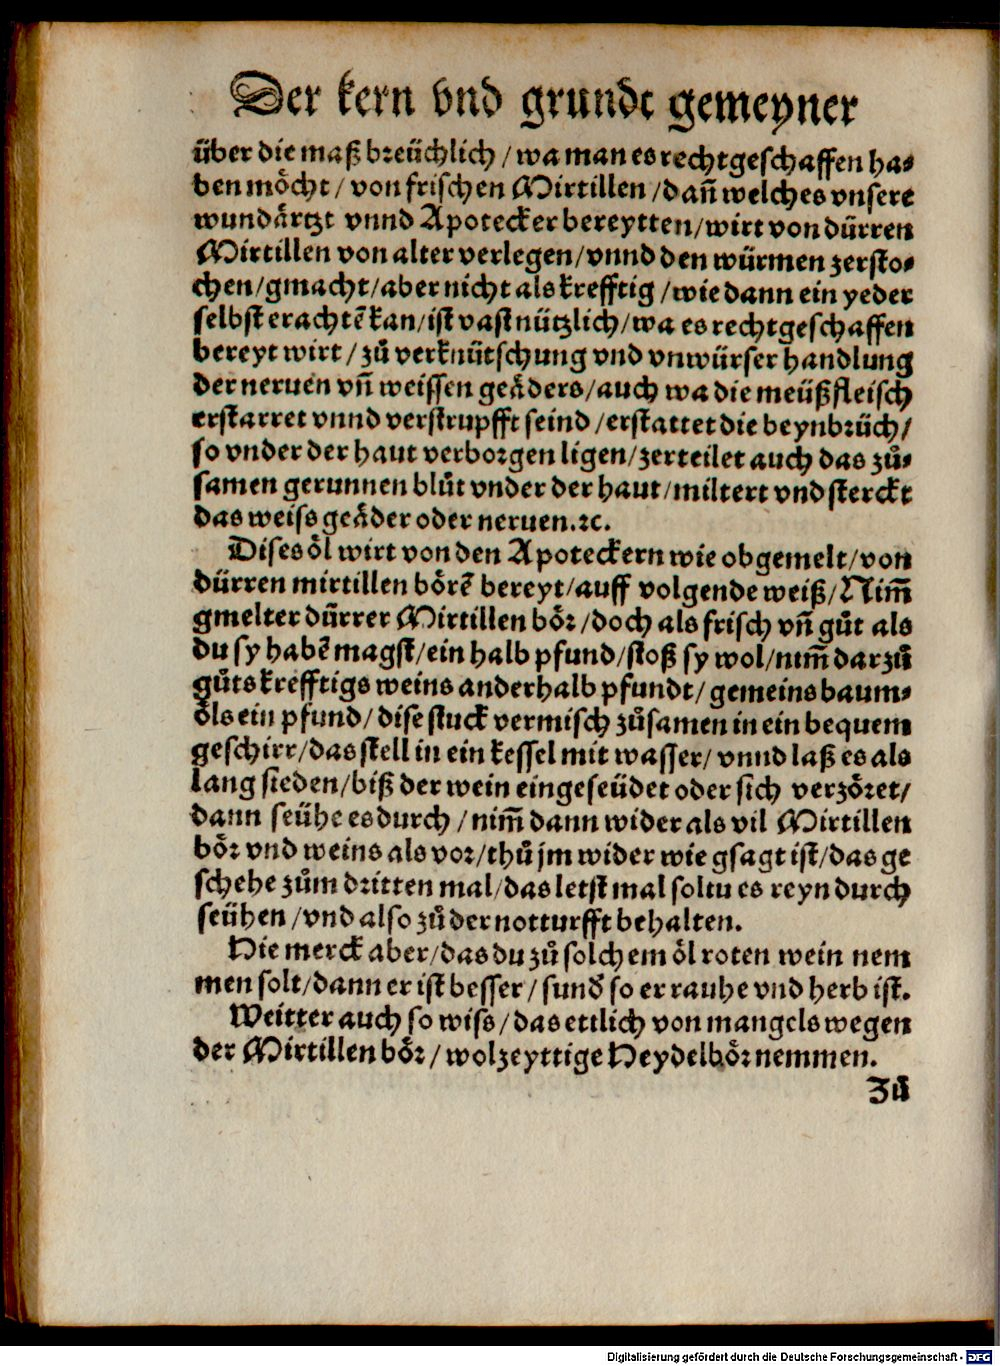 Der kern vnd grundt gemeyner
über die maß breüchlich / wa man es rechtgeschaffen ha⸗
ben möcht / von frischen Mirtillen / dañ welches vnsere
wundärtzt vnnd Apotecker bereytten / wirt von dürren
Mirtillen von alter verlegen / vnnd den würmen zersto⸗
chen / gmacht / aber nicht als krefftig / wie dann ein yeder
selbst erachtē kan / ist vast nützlich / wa es rechtgeschaffen
bereyt wirt / zů verknütschung vnd vnwürser handlung
der neruen vñ weissen geäders / auch wa die meüßfleisch
erstarret vnnd verstrupfft seind / erstattet die beynbrüch /
so vnder der haut verborgen ligen / zerteilet auch das zů⸗
samen gerunnen blůt vnder der haut / miltert vnd sterckt
das weiss geäder oder neruen.ꝛc.
Dises öl wirt von den Apoteckern wie obgemelt / von
dürren mirtillen börē bereyt / auff volgende weiß / Nim̄
gmelter dürrer Mirtillen bör / doch als frisch vñ gůt als
du sy habē magst / ein halb pfund / stoß sy wol / nim̄ darzů
gůts krefftigs weins anderhalb pfundt / gemeins baum⸗
öls ein pfund / dise stuck vermisch zůsamen in ein bequem
geschirr / das stell in ein kessel mit wasser / vnnd laß es als
lang sieden / biß der wein eingeseüdet oder sich verzöret /
dann seühe es durch / nim̄ dann wider als vil Mirtillen
bör vnd weins als vor / thů jm wider wie gsagt ist / das ge
schehe zům dritten mal / das letst mal soltu es reyn durch
seühen / vnd also zů der notturfft behalten.
Hie merck aber / das du zů solchem öl roten wein nem
men solt / dann er ist besser / sund̄ so er rauhe vnd herb ist.
Weitter auch so wiss / das ettlich von mangels wegen
der Mirtillen bör / wolzeyttige Heydelbör nemmen.
Zů
Digitalisierung gefördert durch die Deutsche Forschungsgemeinschaft - DFG